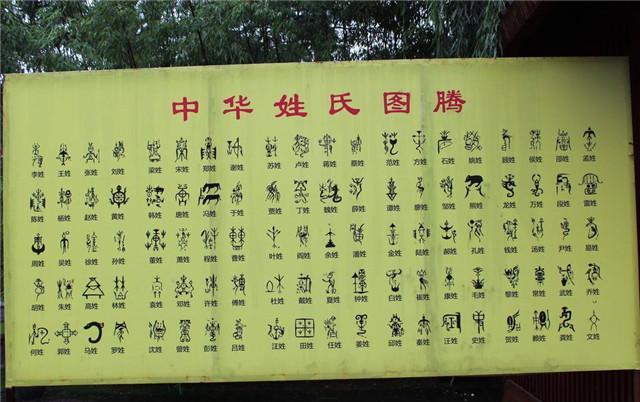 中华姓氏图腾
李姓 王姓 张姓 刘姓 梁姓 宋姓 郑姓 谢姓 苏姓 卢姓 蒋姓 蔡姓 范姓 方姓 石姓 姚姓 顾姓 侯姓 邵姓 孟姓
陈姓 杨姓 赵姓 黄姓 韩姓 唐姓 冯姓 于姓 贾姓 丁姓 魏姓 薛姓 谭姓 廖姓 邹姓 熊姓 龙姓 万姓 段姓 雷姓
周姓 吴姓 徐姓 孙姓 董姓 萧姓 程姓 曹姓 叶姓 阎姓 余姓 潘姓 金姓 陆姓 郝姓 孔姓 钱姓 汤姓 尹姓 易姓
胡姓 朱姓 高姓 林姓 袁姓 邓姓 许姓 傅姓 杜姓 戴姓 夏姓 钟姓 白姓 崔姓 康姓 毛姓 黎姓 常姓 武姓 齐姓
何姓 郭姓 马姓 罗姓 沈姓 曾姓 彭姓 吕姓 汪姓 田姓 任姓 姜姓 邱姓 秦姓 汪姓 史姓 贺姓 赖姓 龚姓 文姓